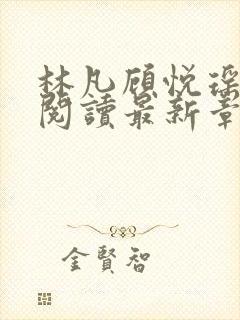 林凡顾悦瑶
閱讀最新章
金賢智